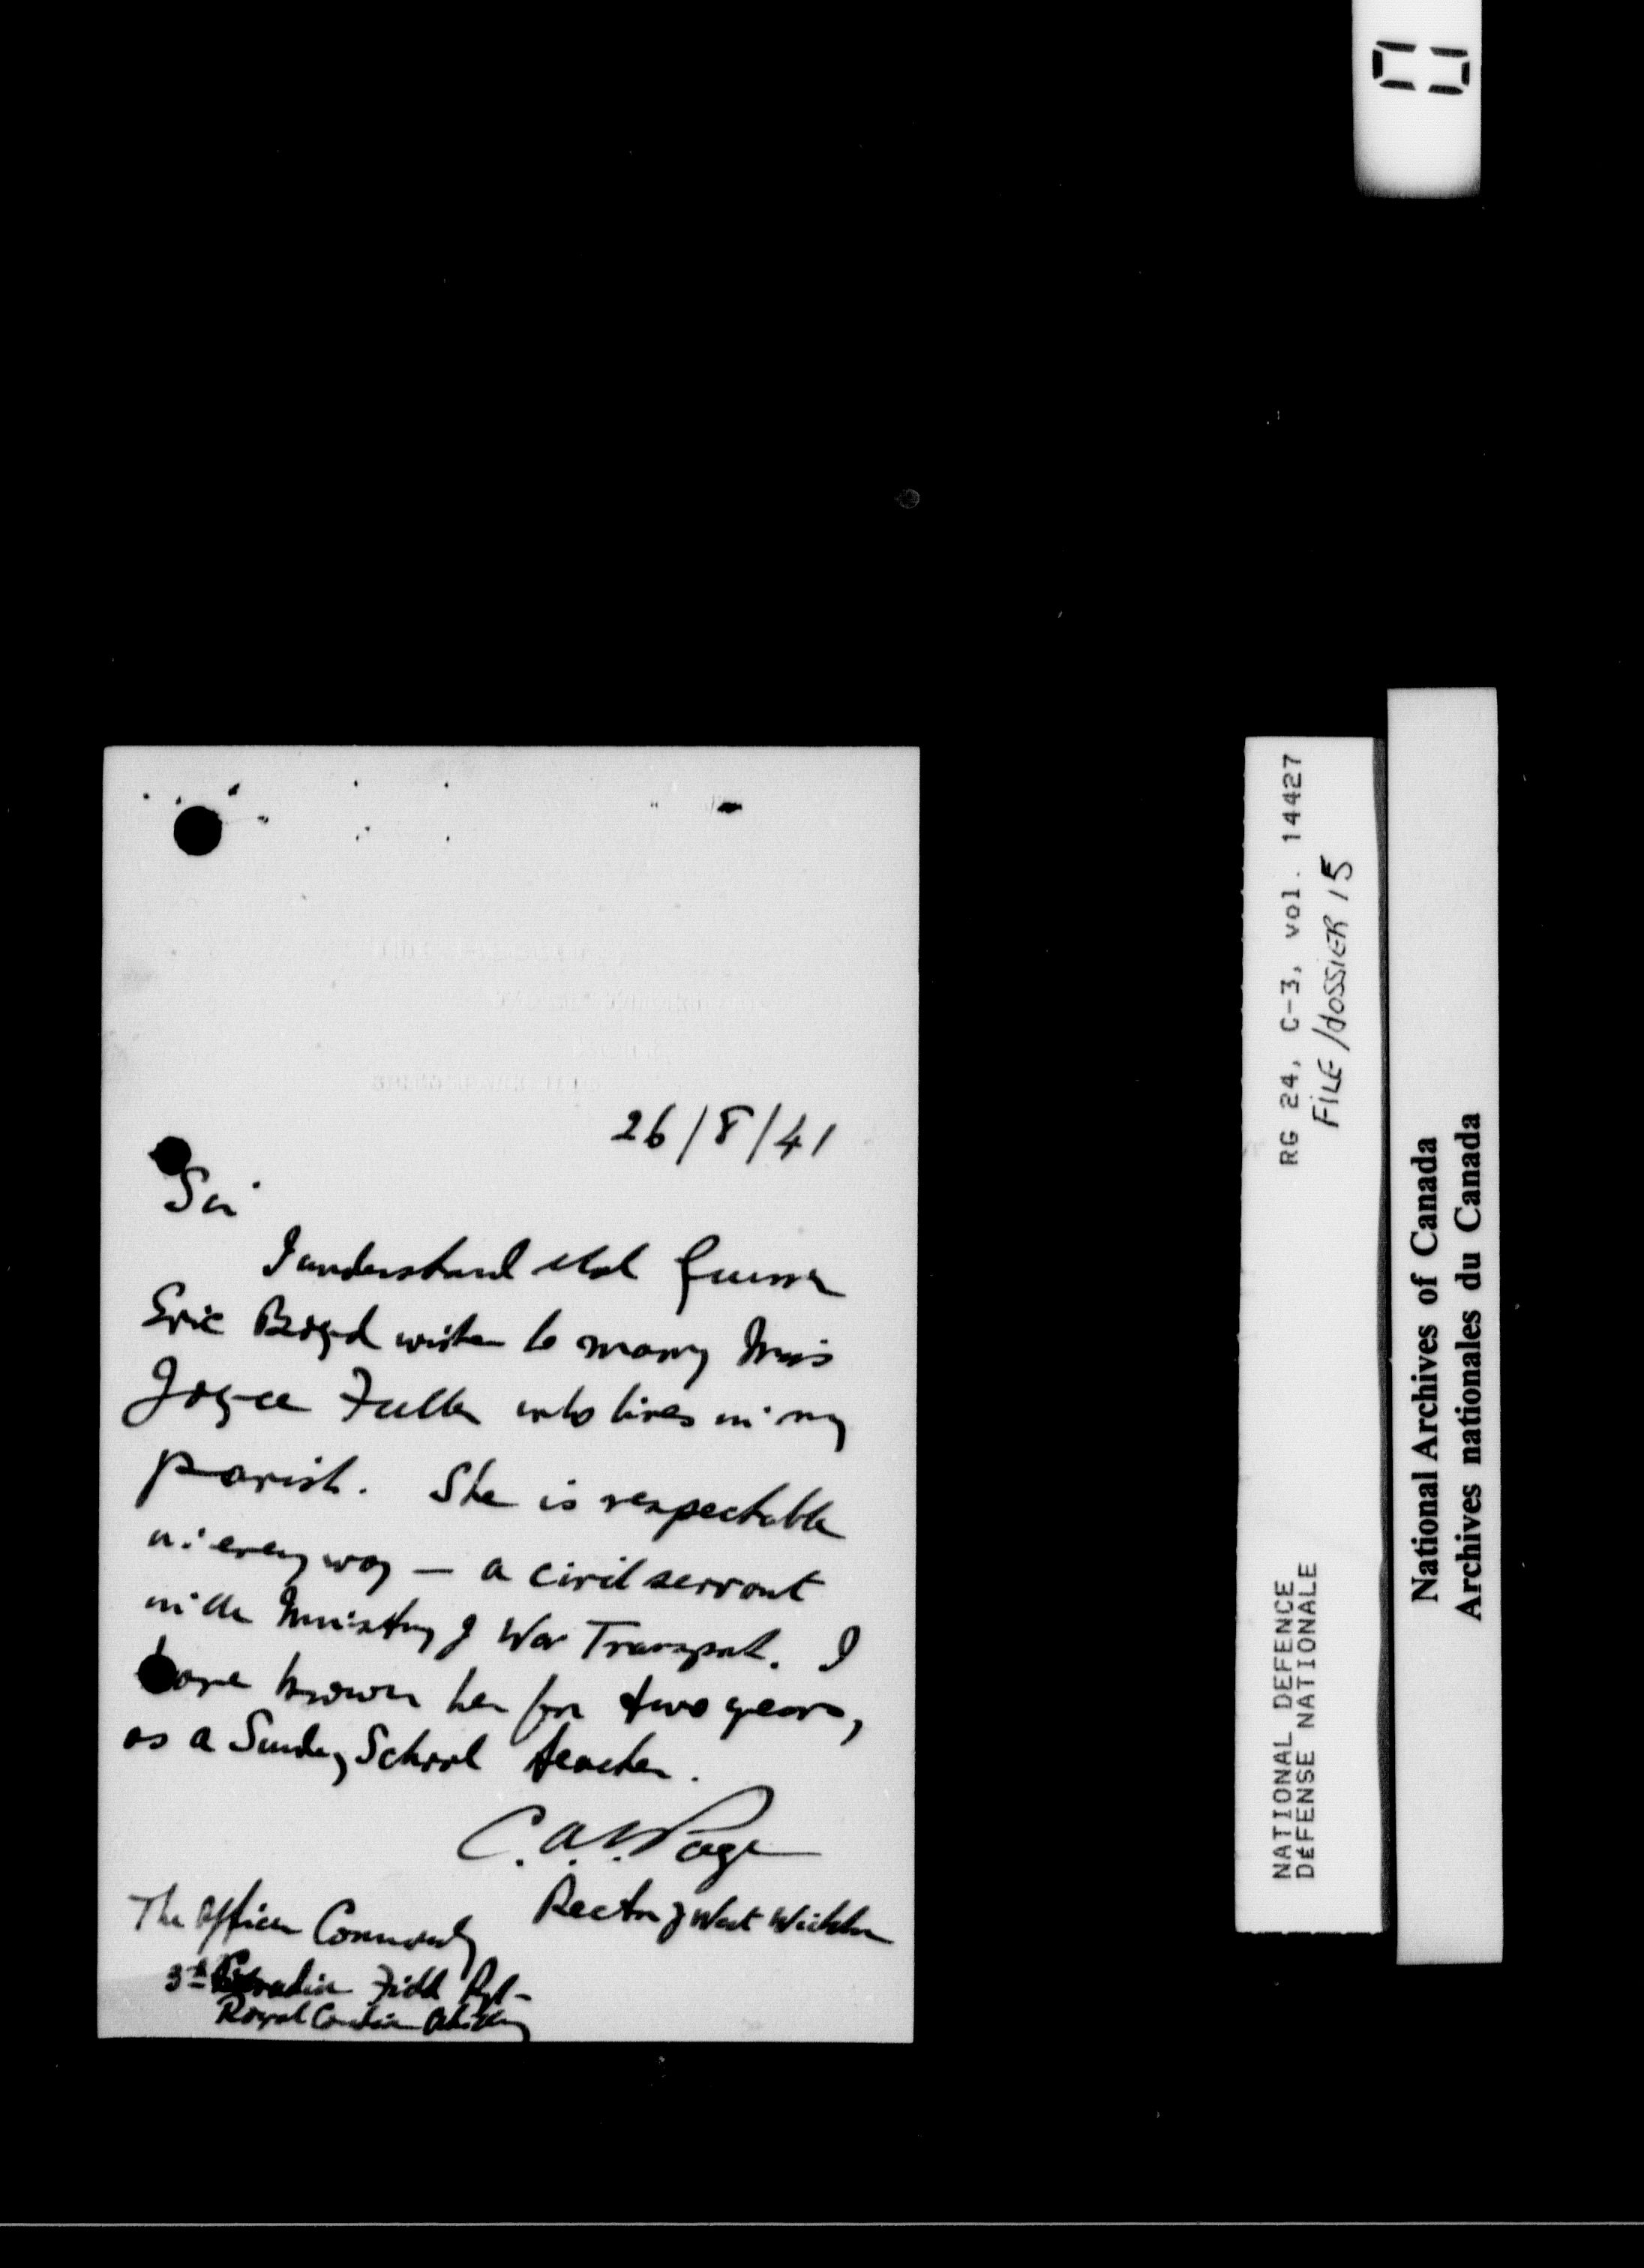 26/8/41
Sir
I understand that Gunner
Eric Boyd wishes to marry Miss
Joyce Fuller who lives in my
parish. She is respectable
in every way — a civil servant
in the Ministry of War Transport. I
have known her for two years,
as a Sunday School teacher.
C. A. W. Page
Rector of West Wickham
The Officer Commanding
3rd Canadian Field Rgt-
Royal Canadian Artillery
RG 24, C-3, vol. 14427
FILE/dOSSIER 15
NATIONAL DEFENCE
DÉFENSE NATIONALE
National Archives of Canada
Archives nationales du Canada